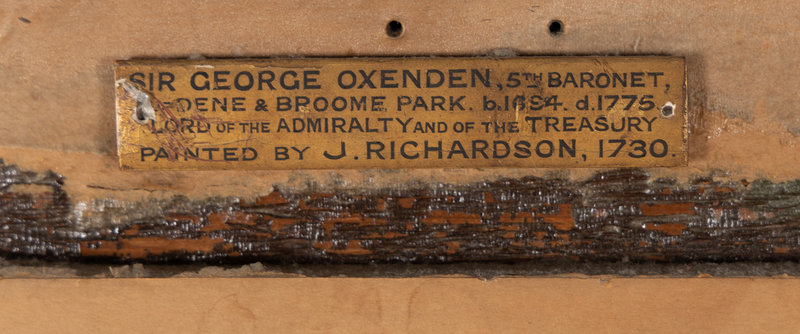 SIR GEORGE OXENDEN, 5TH BARONET,
DENE & BROOME PARK. b.1694. d.1775.
LORD OF THE ADMIRALTY AND OF THE TREASURY
PAINTED BY J. RICHARDSON, 1730.